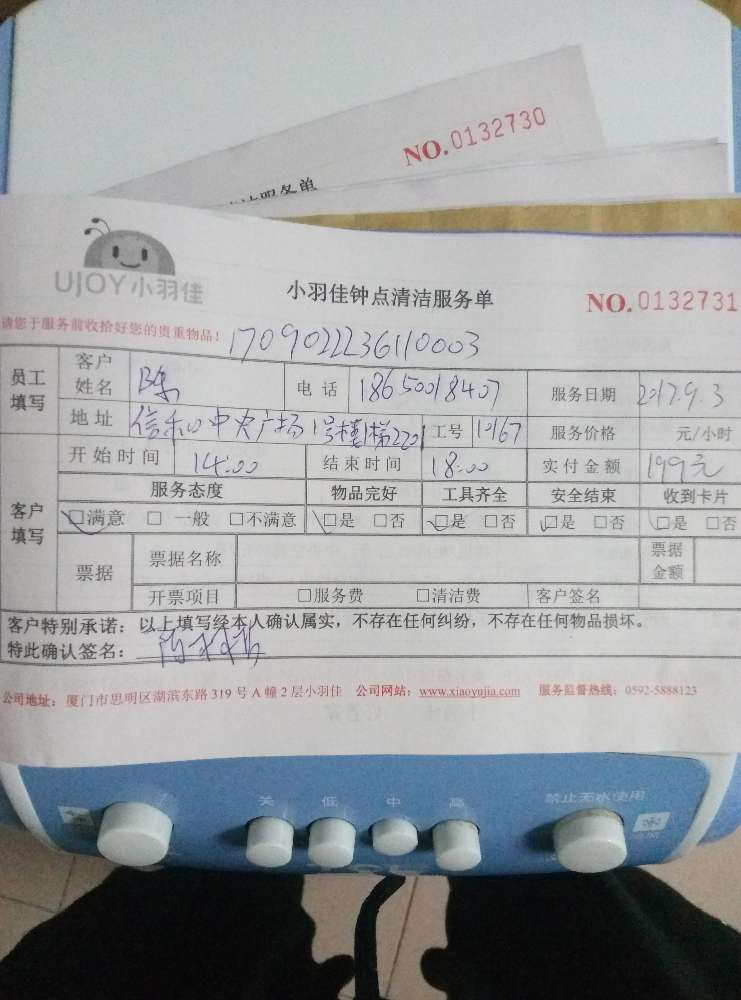 NO.0132730
UJOY小羽佳
小羽佳钟点清洁服务单
NO.0132731
请您于服务前收拾好您的贵重物品!
1709022236110003
员工填写
客户姓名 陈
电话 18650018407
服务日期 2017.9.3
地址 信和中央广场1号楼1梯2201
工号 10167
服务价格 元/小时
客户填写
开始时间 14:00
结束时间 18:00
实付金额 199元
服务态度 物品完好 工具齐全 安全结束 收到卡片
□满意 □一般 □不满意 □是 □否 □是 □否 □是 □否 □是 □否
票据
票据名称
票据金额
开票项目 □服务费 □清洁费 客户签名
客户特别承诺:以上填写经本人确认属实,不存在任何纠纷,不存在任何物品损坏。
特此确认签名:
公司地址:厦门市思明区湖滨东路319号A幢2层小羽佳 公司网站:www.xiaoyujia.com 服务监督热线:0592-5888123
关 低 中 高 禁止无水使用